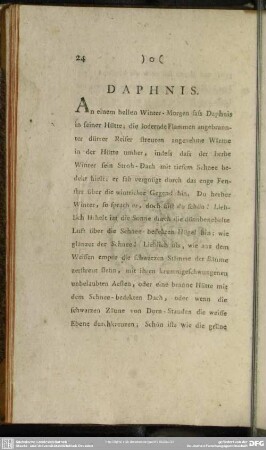 24 )o(
DAPHNIS.
An einem hellen Winter-Morgen saß Daphnis
in seiner Hütte; die lodernde Flammen angebrann-
ter dürrer Reiser streuten angenehme Wärme
in der Hütte umher, indeß daß der herbe
Winter sein Stroh-Dach mit tiefem Schnee be-
deckt hielt; er sah vergnügt durch das enge Fen-
ster über die wintriche Gegend hin. Du herber
Winter, so sprach er, doch bist du schön! Lieb-
lich lächelt itzt die Sonne durch die dünnbenebelte
Luft über die Schnee-bedekten Hügel hin; wie
glänzet der Schnee! Lieblich ists, wie aus dem
Weissen empor die schwarzen Stämme der Bäume
zerstreut stehn, mit ihren krummgeschwungenen
unbelaubten Aesten, oder eine braune Hütte mit
dem Schnee-bedekten Dach, oder wenn die
schwarzen Zäune von Dorn-Stauden die weisse
Ebene durchkreuzen; Schön ists wie die grüne